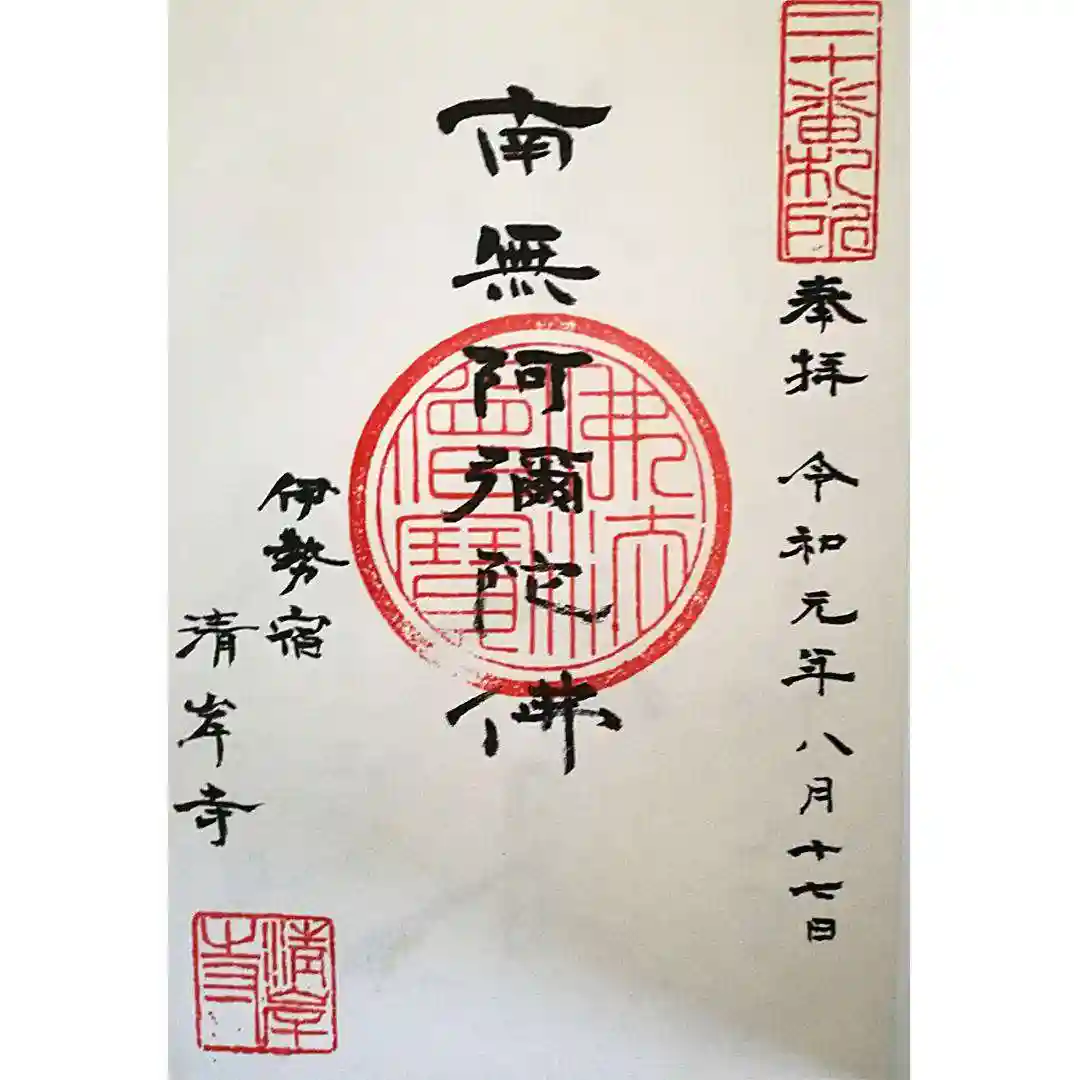 二十番札所
奉拝 令和元年八月十七日
南無阿彌陀佛
佛法僧寶
伊勢宿
清岸寺
清岸寺